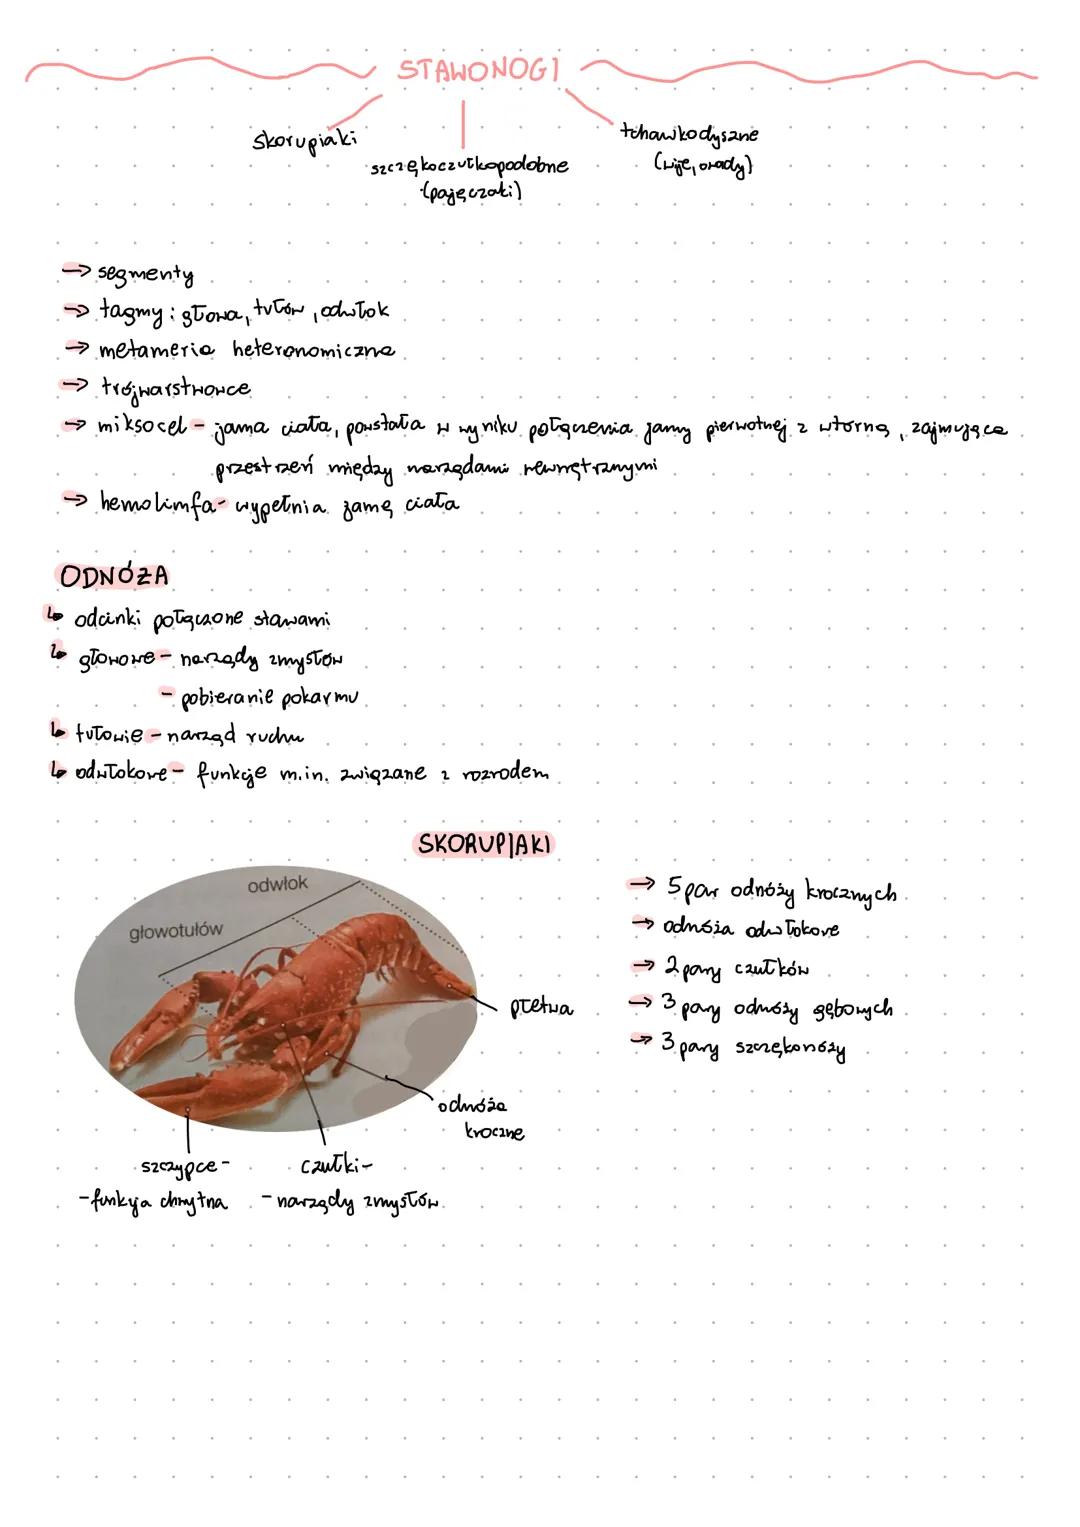 STAWONOGI
skorupiaki
szczękoczułkopodobne
(pajęczaki)
tchawkodyszne
(wije, owady)
→ segmenty
→ tagmy: głowa, tułów, odwłok
→ metameria heteronomiczna
→ trójwarstwowce
→ miksocel - jama ciała, powstała w wyniku połączenia jamy pierwotnej z wtórną, zajmująca
przestrzeń między narządami wewnętrznymi
→ hemolimfa - wypełnia jamę ciała
ODNÓŻA
↳ odcinki połączone stawami
↳ głowowe - narządy zmysłów
- pobieranie pokarmu
↳ tułowie - narząd ruchu
↳ odwłokowe - funkcje m.in. związane z rozrodem
SKORUPIAKI
odwłok
głowotułów
płetwa
odnóża
kroczne
szczypce -
- funkcja chwytna
czułki -
- narządy zmysłów
→ 5 par odnóży krocznych
→ odnóża odwłokowe
→ 2 pary czułków
→ 3 pary odnóży gębowych
→ 3 pary szczękonóży